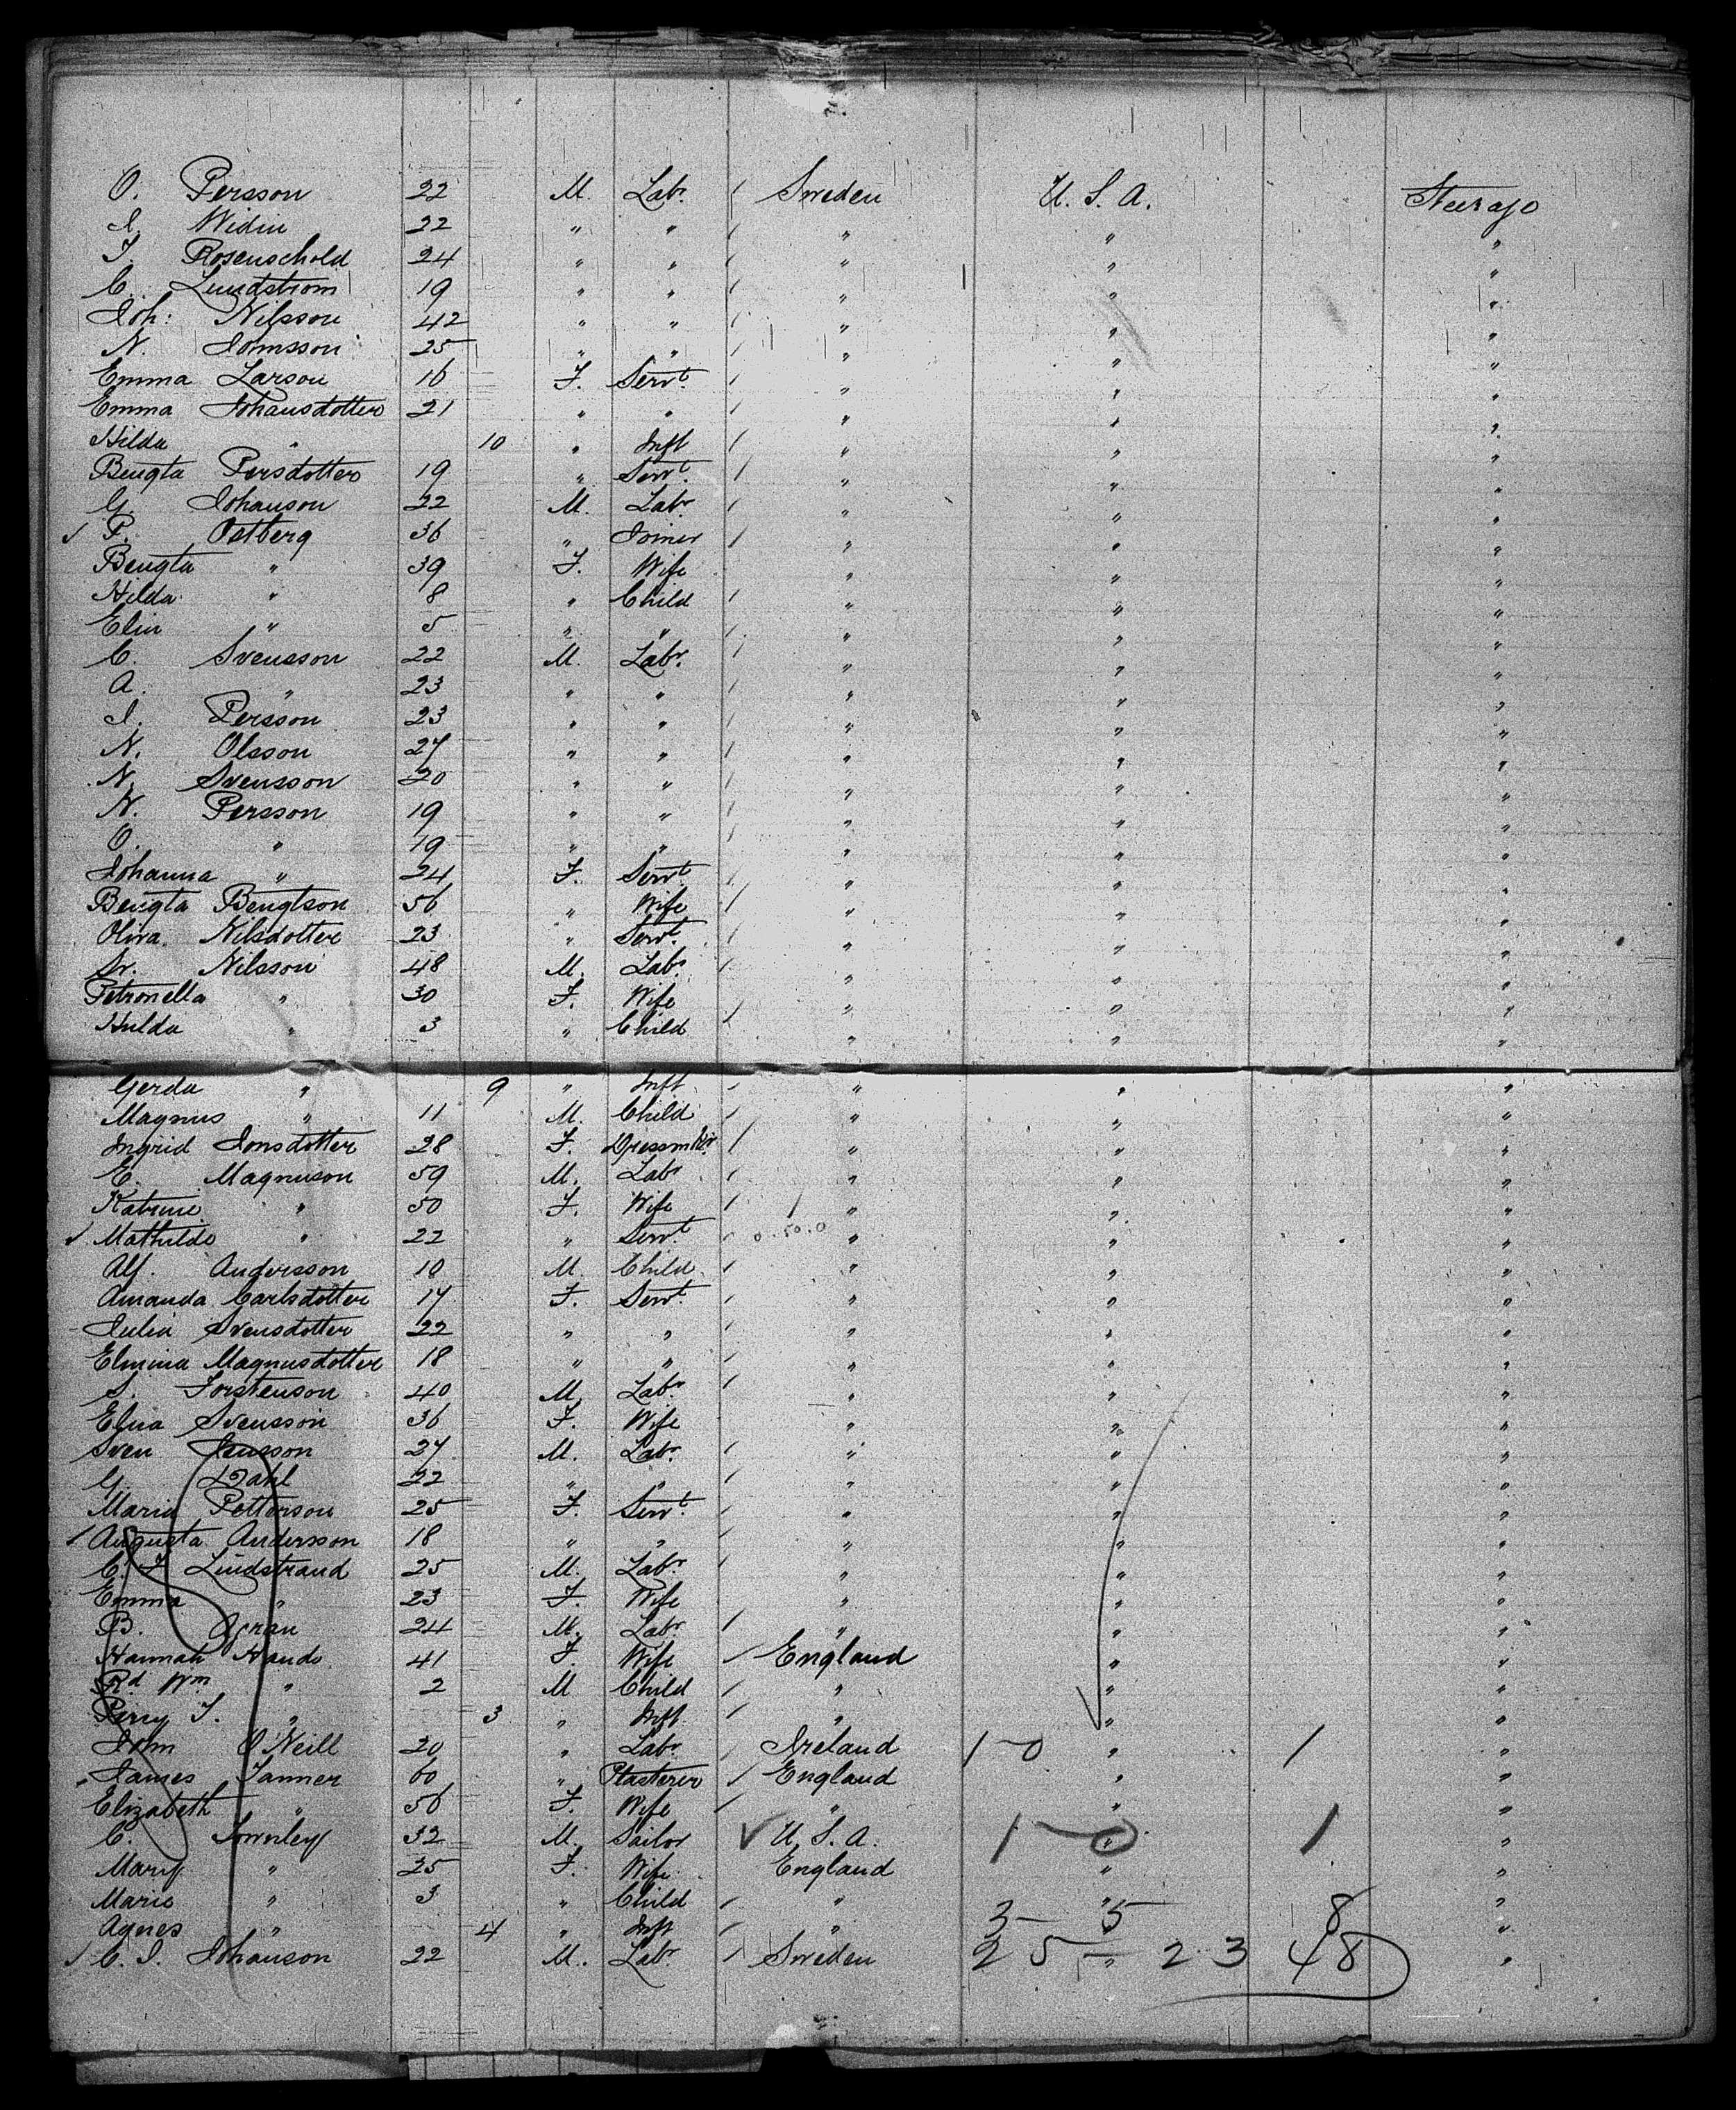 O. Persson 22 M. Labr. / Sweden U. S. A. Steerage
I. Widin 22 " " / " " "
J. Rosenschold 24 " " / " " "
C. Lundstrom 19 " " / " " "
Joh: Nilsson 42 " " / " " "
N. Jonsson 25 " " / " " "
Emma Larson 16 F. Servt. / " " "
Emma Johansdotter 21 " " / " " "
Hilda " 10 " Inft / " " "
Bengta Persdotter 19 " Servt. / " " "
G. Johanson 22 M. Labr / " " "
✓ P. Ostberg 36 " Joiner / " " "
Bengta " 39 F. Wife " " "
Hilda " 8 " Child / " " "
Elin " 5 " " / " " "
C. Svensson 22 M. Labr. / " " "
A. " 23 " " / " " "
I. Persson 23 " " / " " "
N. Olsson 27 " " / " " "
N. Svensson 20 " " / " " "
N. Persson 19 " " / " " "
O. " 19 " " / " " "
Johanna " 24 F. Servt. / " " "
Bengta Bengtson 56 " Wife / " " "
Oliva Nilsdotter 23 " Servt. / " " "
Sv. Nilsson 48 M. Labr / " " "
Petronella " 30 F. Wife / " " "
Hulda " 3 " Child / " " "
Gerda " 9 " Inft / " " "
Magnus " 11 M. Child / " " "
Ingrid Jonsdotter 28 F. Dressmkr. / " " "
E. Magnuson 59 M. Labr / " " "
Katrine " 50 F. Wife / " " "
✓ Mathilde " 22 " Servt / " " "
Alf. Andersson 10 M. Child / " " "
Amanda Carlsdotter 17 F. Servt. / " " "
Julia Svensdotter 22 " " / " " "
Elmina Magnusdotter 18 " " / " " "
S. Torstenson 40 M. Labr. / " " "
Elna Svensson 36 F. Wife " " "
Sven Jensson 27 M. Labr / " " "
G. Dahl 22 " " / " " "
Maria Petterson 25 F. Servt. / " " "
/ Augusta Andersson 18 " " / " " "
C. F. Lindstrand 25 M. Labr. / " " "
Emma " 23 F. Wife " " "
B. Gran 24 M. Labr. / " " "
Hannah Hando 41 F. Wife / England " "
Rd Wm " 2 M Child / " " "
Percy T. " 3 " Inft / " " "
John O'Neill 20 " Labr. / Ireland 1-0 " 1 "
James Tanner 60 " Plasterer / England " "
Elizabeth " 56 F. Wife / " " "
C. Townley 32 M. Sailor ✓ U. S. A. 1-0 " 1 "
Mary " 25 F. Wife England " "
Marie " 3 " Child / " " "
Agnes " 4 " Inft / " 3-5 8 "
/ C. J. Johanson 22 M. Labr / Sweden 25 - 23 " 48 "